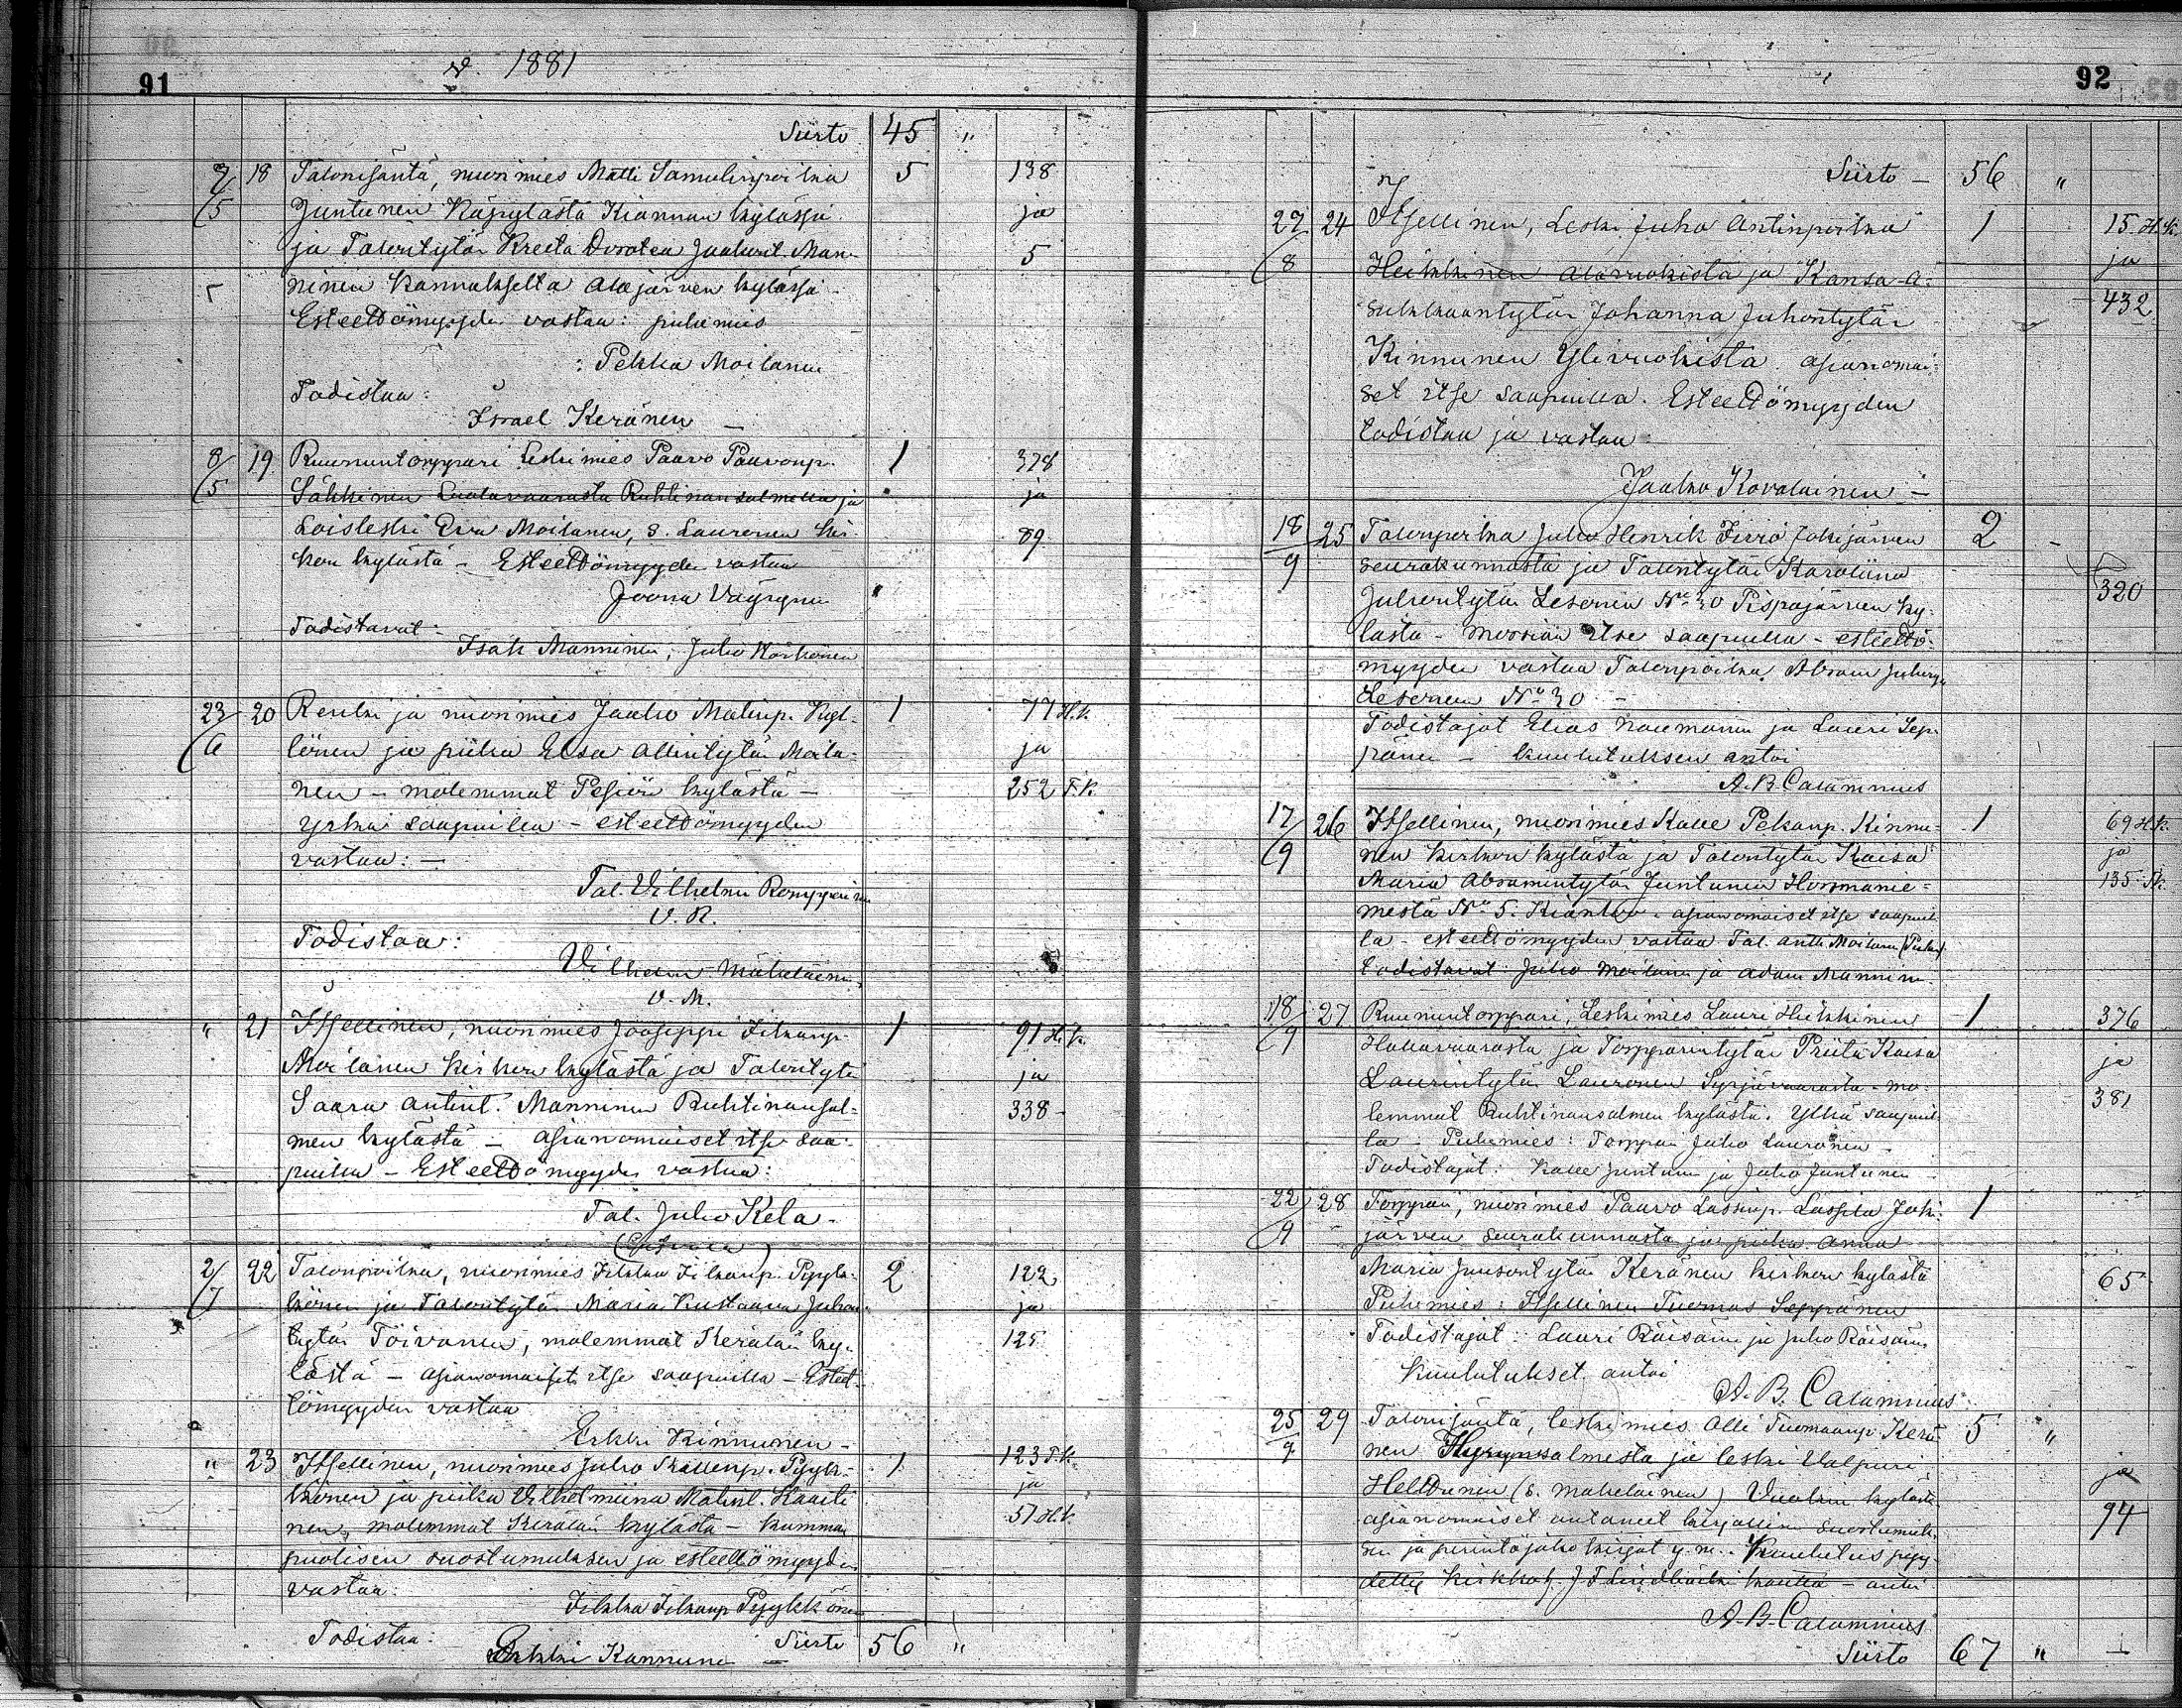 91
v. 1881
Siirto 45 "
7/5 18 Talonisäntä, nuorimies Matti Samulinpoika 5 138
Juntunen Käpylästä Kiannan kylässä ja
ja Talontytär Kreeta Dorotea Jaakont. Man- 5
ninen Kannukselta Alajärven kylässä
Esteettömyyden vastaa: puhemies
: Pekka Moilanen
Todistaa:
Israel Keränen –
8/5 19 Ruununtorppari Leskimies Paavo Paavonp. 1 378
Säkkinen Ruhtinansalmella ja ja
Loisleski Eva Moilanen, s. Lauronen Kir- 89
kon kylästä – Esteettömyyden vastaa
Joona Väyrynen
Todistavat:
Isak Manninen, Juho
23/6 20 Renki ja nuorimies Jaako Matinp. Kyl- 1 77 H.k.
lönen ja piika Elsa Allintytär Moila- ja
nen – molemmat Pesiön kylästä – 252 T.k.
Ylkä saapuilla – esteettömyyden
vastaa: –
Tal. Vilhelm Romppainen
V. R.
Todistaa:
Vilhelm Mäkeläinen
V. M.
" 21 Itsellinen, nuorimies Jooseppi Ilkanp. 1 91 H.k.
Moilanen Kirkon kylästä ja Talontytär ja
Saara Antint. Manninen Ruhtinansal- 338
men kylästä – asianomaiset itse saa-
puilla – Esteettömyyden vastaa:
Tal. Juho Kela –
2/7 22 Talonpoika, nuorimies Ilkka Ilkanp. Pyyk- 2 122
könen ja Talontytär Maria Kustaava Juhon- ja
tytär Toivanen, molemmat Kerälän ky- 125
lästä – asianomaiset itse saapuilla – Esteet-
tömyyden vastaa
Erkki Kinnunen –
" 23 Itsellinen, nuorimies Juho Kallenp. Pyyk- 1 123 T.k.
könen ja piika Vilhelmiina Matint. Kaarti- ja
nen, molemmat Kerälän kylästä – kumman 51 H.k.
puolisen suostumuksen ja esteettömyyden
vastaa:
Ilkka Ilkanp Pyykkönen
Todistaa: Erkki Kannunen – Siirto 56 "
92
Siirto – 56 "
27/8 24 Itsellinen, Leski Juho Antinpoika 1 15 H.k.
Heikkinen Alavuokista ja Kansa-a- ja
sukkaantytär Johanna Juhontytär 432
Kinnunen Ylivuokista asianomai-
set itse saapuilla. Esteettömyyden
todistaa ja vastaa:
Jaakko Kovalainen –
18/9 25 Talonpoika Juho Henrik Jokijärven 2 –
seurakunnasta ja Talontytär Karoliina 320
Juhontytär Lesonen No 30 Pispajärven ky-
lästä – morsian itse saapuilla – esteettö-
myyden vastaa Talonpoika Abram Juhonp.
Lesonen No 30 –
Todistajat Elias Naumanen ja Lauri Sep-
pänen – kuulutuksen antoi
A. B. Calamnius
17/9 26 Itsellinen, nuorimies Kalle Pekanp. Kinnu- 1 69 H.k.
nen Kirkon kylästä ja Talontytär Kaisa ja
Maria Abramintytär Juntunen Hormanie- 135 T.k.
mestä No 5. Kianta – asianomaiset itse saapuil-
la – esteettömyyden vastaa Tal. Antti Moilanen
todistavat Juho Moilanen ja Adam Manninen
18/9 27 Ruununtorppari, Leskimies Lauri Heikkinen 1 376
Hakavaarasta ja Torpparintytär Priita Kaisa ja
Laurintytär Lauronen Syrjävaarasta – mo- 381
lemmat Ruhtinansalmen kylästä. Ylkä saapuil-
la – Puhemies: Torppari Juho Lauronen –
Todistajat: Kalle Juntunen ja Juho Juntunen –
22/9 28 Torppari, nuorimies Paavo Lassinp. Lassila Joki- 1
järven seurakunnasta ja piika Anna
Maria Juusontytär Keränen kirkon kylästä 65
Puhemies: Itsellinen Tuomas Seppänen
Todistajat: Lauri Räisänen ja Juho Räisänen
Kuulutukset antoi
A. B. Calamnius
25/9 29 Talonisäntä, leskimies Olli Tuomaanp. Kerä- 5 "
nen Hyrynsalmesta ja leski Valpuri ja
Helttunen (s. Mäkeläinen) Vuokin kylästä 94
asianomaiset antaneet kirjallisen suostumuk-
sen ja perintöjako kirjat y.m. Kuulutus pyy-
detty Kirkkoh. J F Lindbäckin kautta – antoi
A. B. Calamnius
Siirto 67 " –